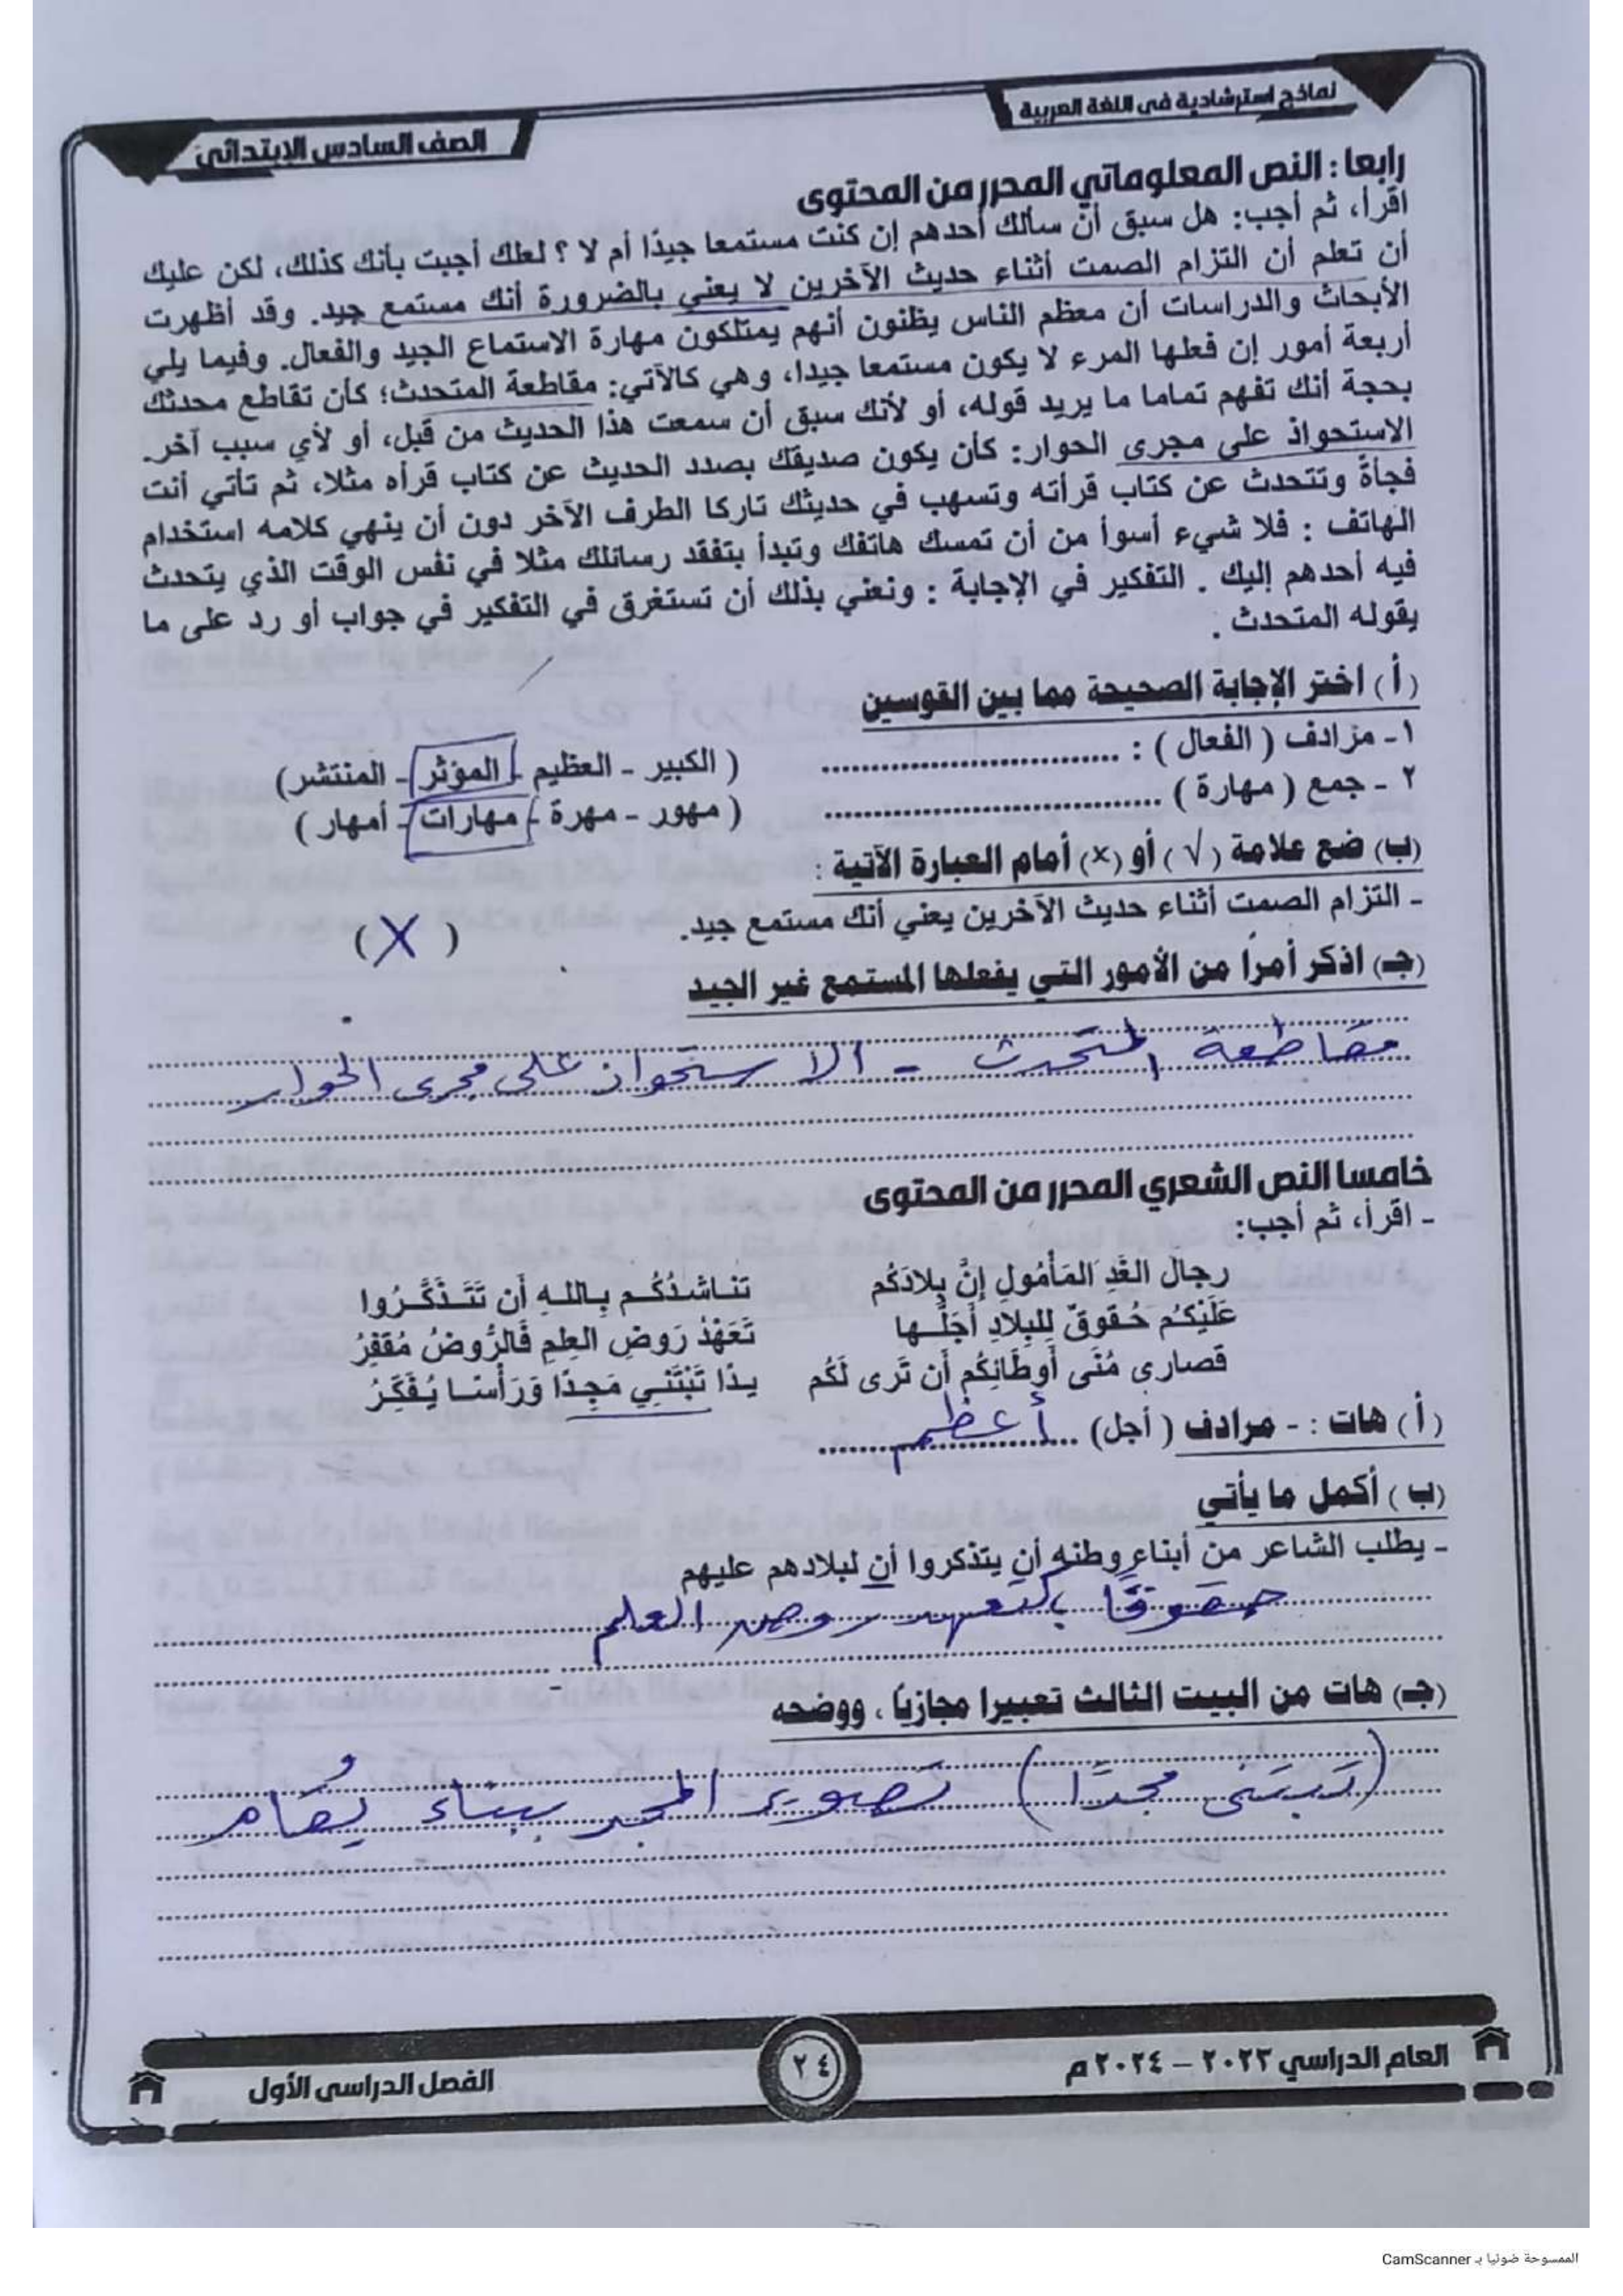 نماذج استرشادية فى اللغة العربية
الصف السادس الإبتدائى
رابعا : النص المعلوماتي المحرر من المحتوى
اقرأ، ثم أجب: هل سبق أن سألك أحدهم إن كنت مستمعا جيدًا أم لا ؟ لعلك أجبت بأنك كذلك، لكن عليك
أن تعلم أن التزام الصمت أثناء حديث الآخرين لا يعني بالضرورة أنك مستمع جيد. وقد أظهرت
الأبحاث والدراسات أن معظم الناس يظنون أنهم يمتلكون مهارة الاستماع الجيد والفعال. وفيما يلي
أربعة أمور إن فعلها المرء لا يكون مستمعا جيدا، وهي كالآتي: مقاطعة المتحدث؛ كأن تقاطع محدثك
بحجة أنك تفهم تماما ما يريد قوله، أو لأنك سبق أن سمعت هذا الحديث من قبل، أو لأي سبب آخر.
الاستحواذ على مجرى الحوار: كأن يكون صديقك بصدد الحديث عن كتاب قرأه مثلا، ثم تأتي أنت
فجأة وتتحدث عن كتاب قرأته وتسهب في حديثك تاركا الطرف الآخر دون أن ينهي كلامه استخدام
الهاتف : فلا شيء أسوأ من أن تمسك هاتفك وتبدأ بتفقد رسائلك مثلا في نفس الوقت الذي يتحدث
فيه أحدهم إليك . التفكير في الإجابة : ونعني بذلك أن تستغرق في التفكير في جواب أو رد على ما
يقوله المتحدث .
(أ) اختر الإجابة الصحيحة مما بين القوسين
١- مرادف ( الفعال ) : .............................. ( الكبير - العظيم - المؤثر - المنتشر)
٢ - جمع ( مهارة ) .............................. ( مهور - مهرة - مهارات - أمهار )
(ب) ضع علامة (√) أو (×) أمام العبارة الآتية :
- التزام الصمت أثناء حديث الآخرين يعني أنك مستمع جيد. ( X )
(جـ) اذكر أمرا من الأمور التي يفعلها المستمع غير الجيد
مقاطعة المتحدث - الاستحواذ على مجرى الحوار
خامسا النص الشعري المحرر من المحتوى
- اقرأ، ثم أجب:
رِجالَ الغَدِ المَأمُولِ إنَّ بِلادَكُم تناشدُكُم بِاللهِ أن تَتَذَكَّرُوا
عَلَيْكُم حُقوقٌ لِلبِلادِ أجَلُّها تَعَهُّدُ رَوضِ العِلمِ فَالرَّوضُ مُقفِرُ
قصارى مُنَى أوطَانِكُم أن تَرى لَكُم يدًا تَبْتَنِي مَجدًا وَرَأسًا يُفَكِّرُ
(أ) هات : - مرادف ( أجل) أعظم
(ب ) أكمل ما يأتي
- يطلب الشاعر من أبناء وطنه أن يتذكروا أن لبلادهم عليهم
حقوقًا كتعهد روض العلم
(جـ) هات من البيت الثالث تعبيرا مجازيا ، ووضحه
(تبتنى مجدًا) تصوير المجد ببناء يُقام
العام الدراسي ٢٠٢٣ – ٢٠٢٤ م
٢٤
الفصل الدراسى الأول
الممسوحة ضوئيا بـ CamScanner